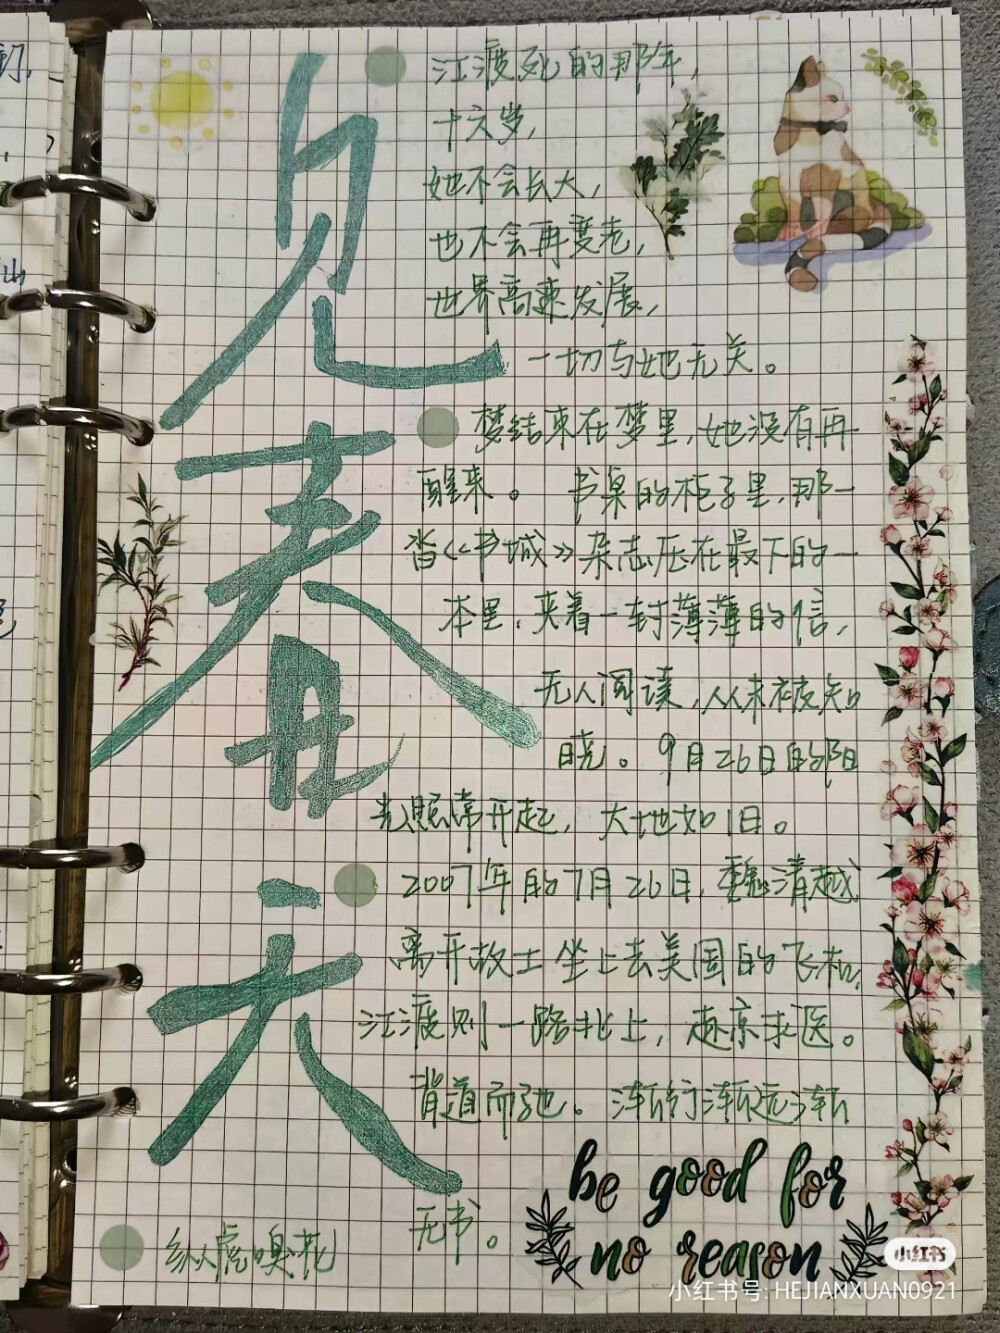 见春天
江渡死的那年，
十六岁，
她不会长大，
也不会再变老，
世界高速发展，
一切与她无关。
梦结束在梦里，她没有再
醒来。书桌的柜子里，那一
沓《书城》杂志压在最下的一
本里，夹着一封薄薄的信，
无人阅读，从未被知
晓。9月26日的阳
光照常升起，大地如旧。
2007年的7月26日，魏清越
离开故土坐上去美国的飞机，
江渡则一路北上，赴京求医。
背道而驰。渐行渐远渐
无书。
纵虎嗅花
be good for
no reason
小红书
小红书号：HEJIANXUAN0921